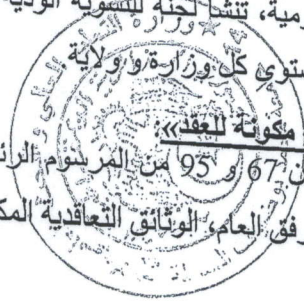 ومية، تنشأ لجنة للتسوية الودية
مستوى كل وزارة و ولاية
مكونة للعقد»:
67 و 95 من المرسوم الرئا
رفق العام، الوثائق التعاقدية المك